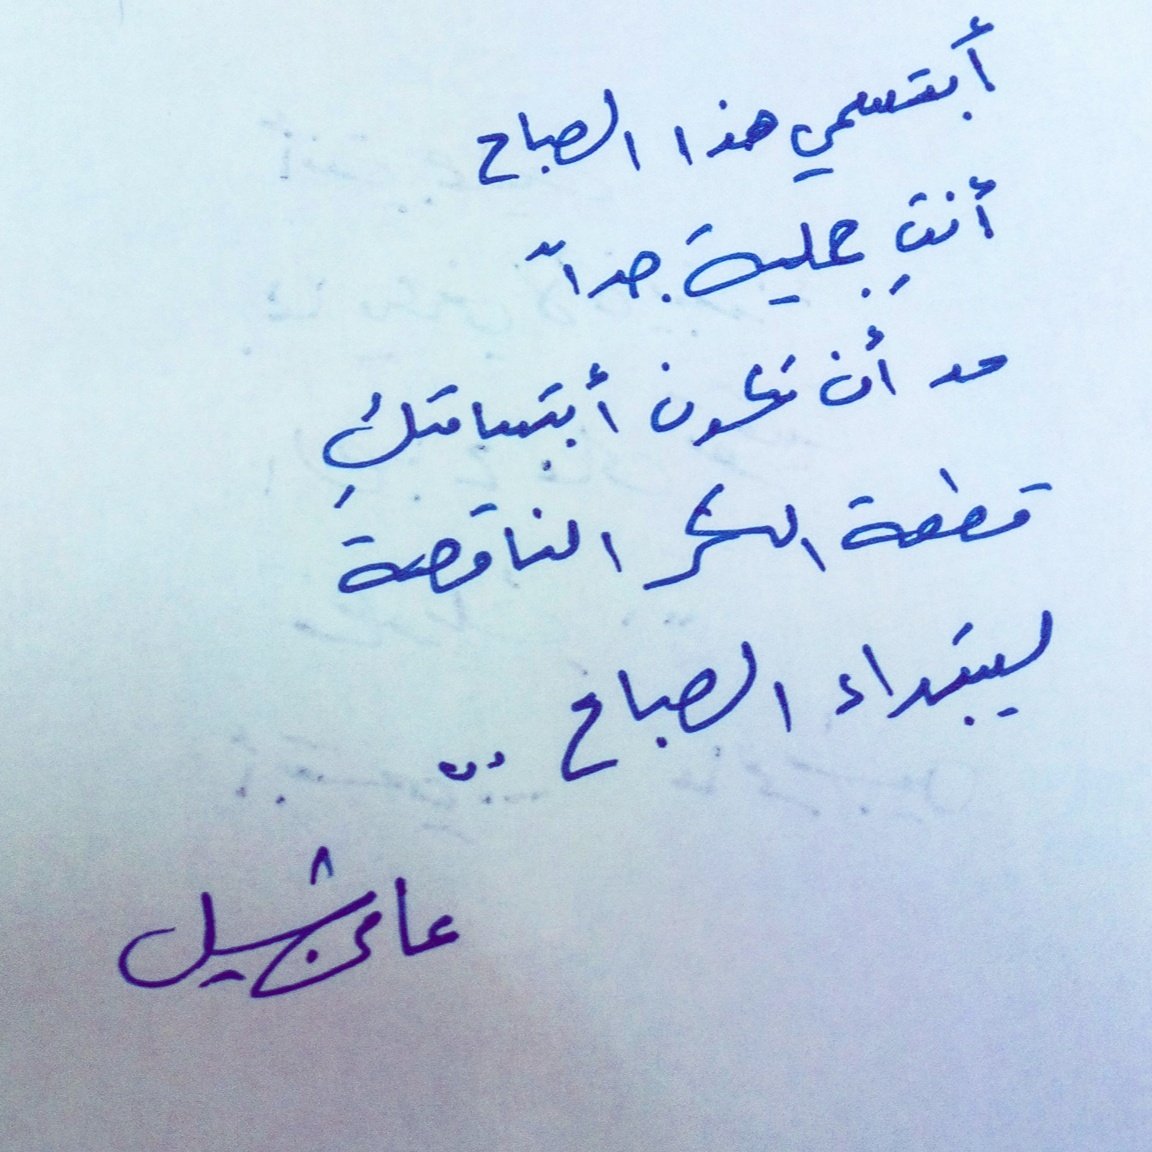 أبتسمي هذا الصباح
أنتِ جميلة جداً
حد أن تكون أبتسامتكِ
قطعة السكر الناقصة
ليبتداء الصباح ..